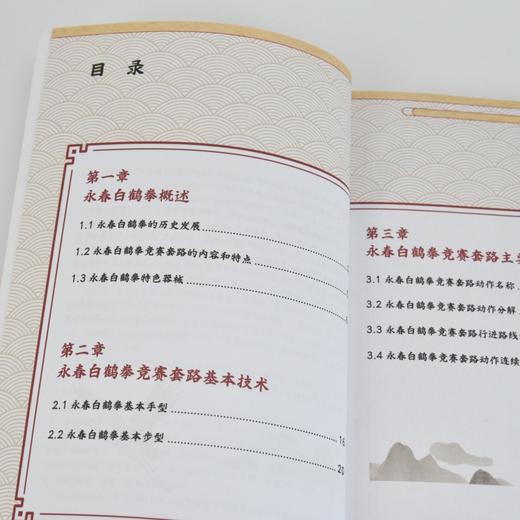 目 录
第一章
永春白鹤拳概述
1.1 永春白鹤拳的历史发展
1.2 永春白鹤拳竞赛套路的内容和特点
1.3 永春白鹤拳特色器械
第二章
永春白鹤拳竞赛套路基本技术
2.1 永春白鹤拳基本手型 16
2.2 永春白鹤拳基本步型 20
第三章
永春白鹤拳竞赛套路主
3.1 永春白鹤拳竞赛套路动作名称
3.2 永春白鹤拳竞赛套路动作分解
3.3 永春白鹤拳竞赛套路行进路线
3.4 永春白鹤拳竞赛套路动作连续